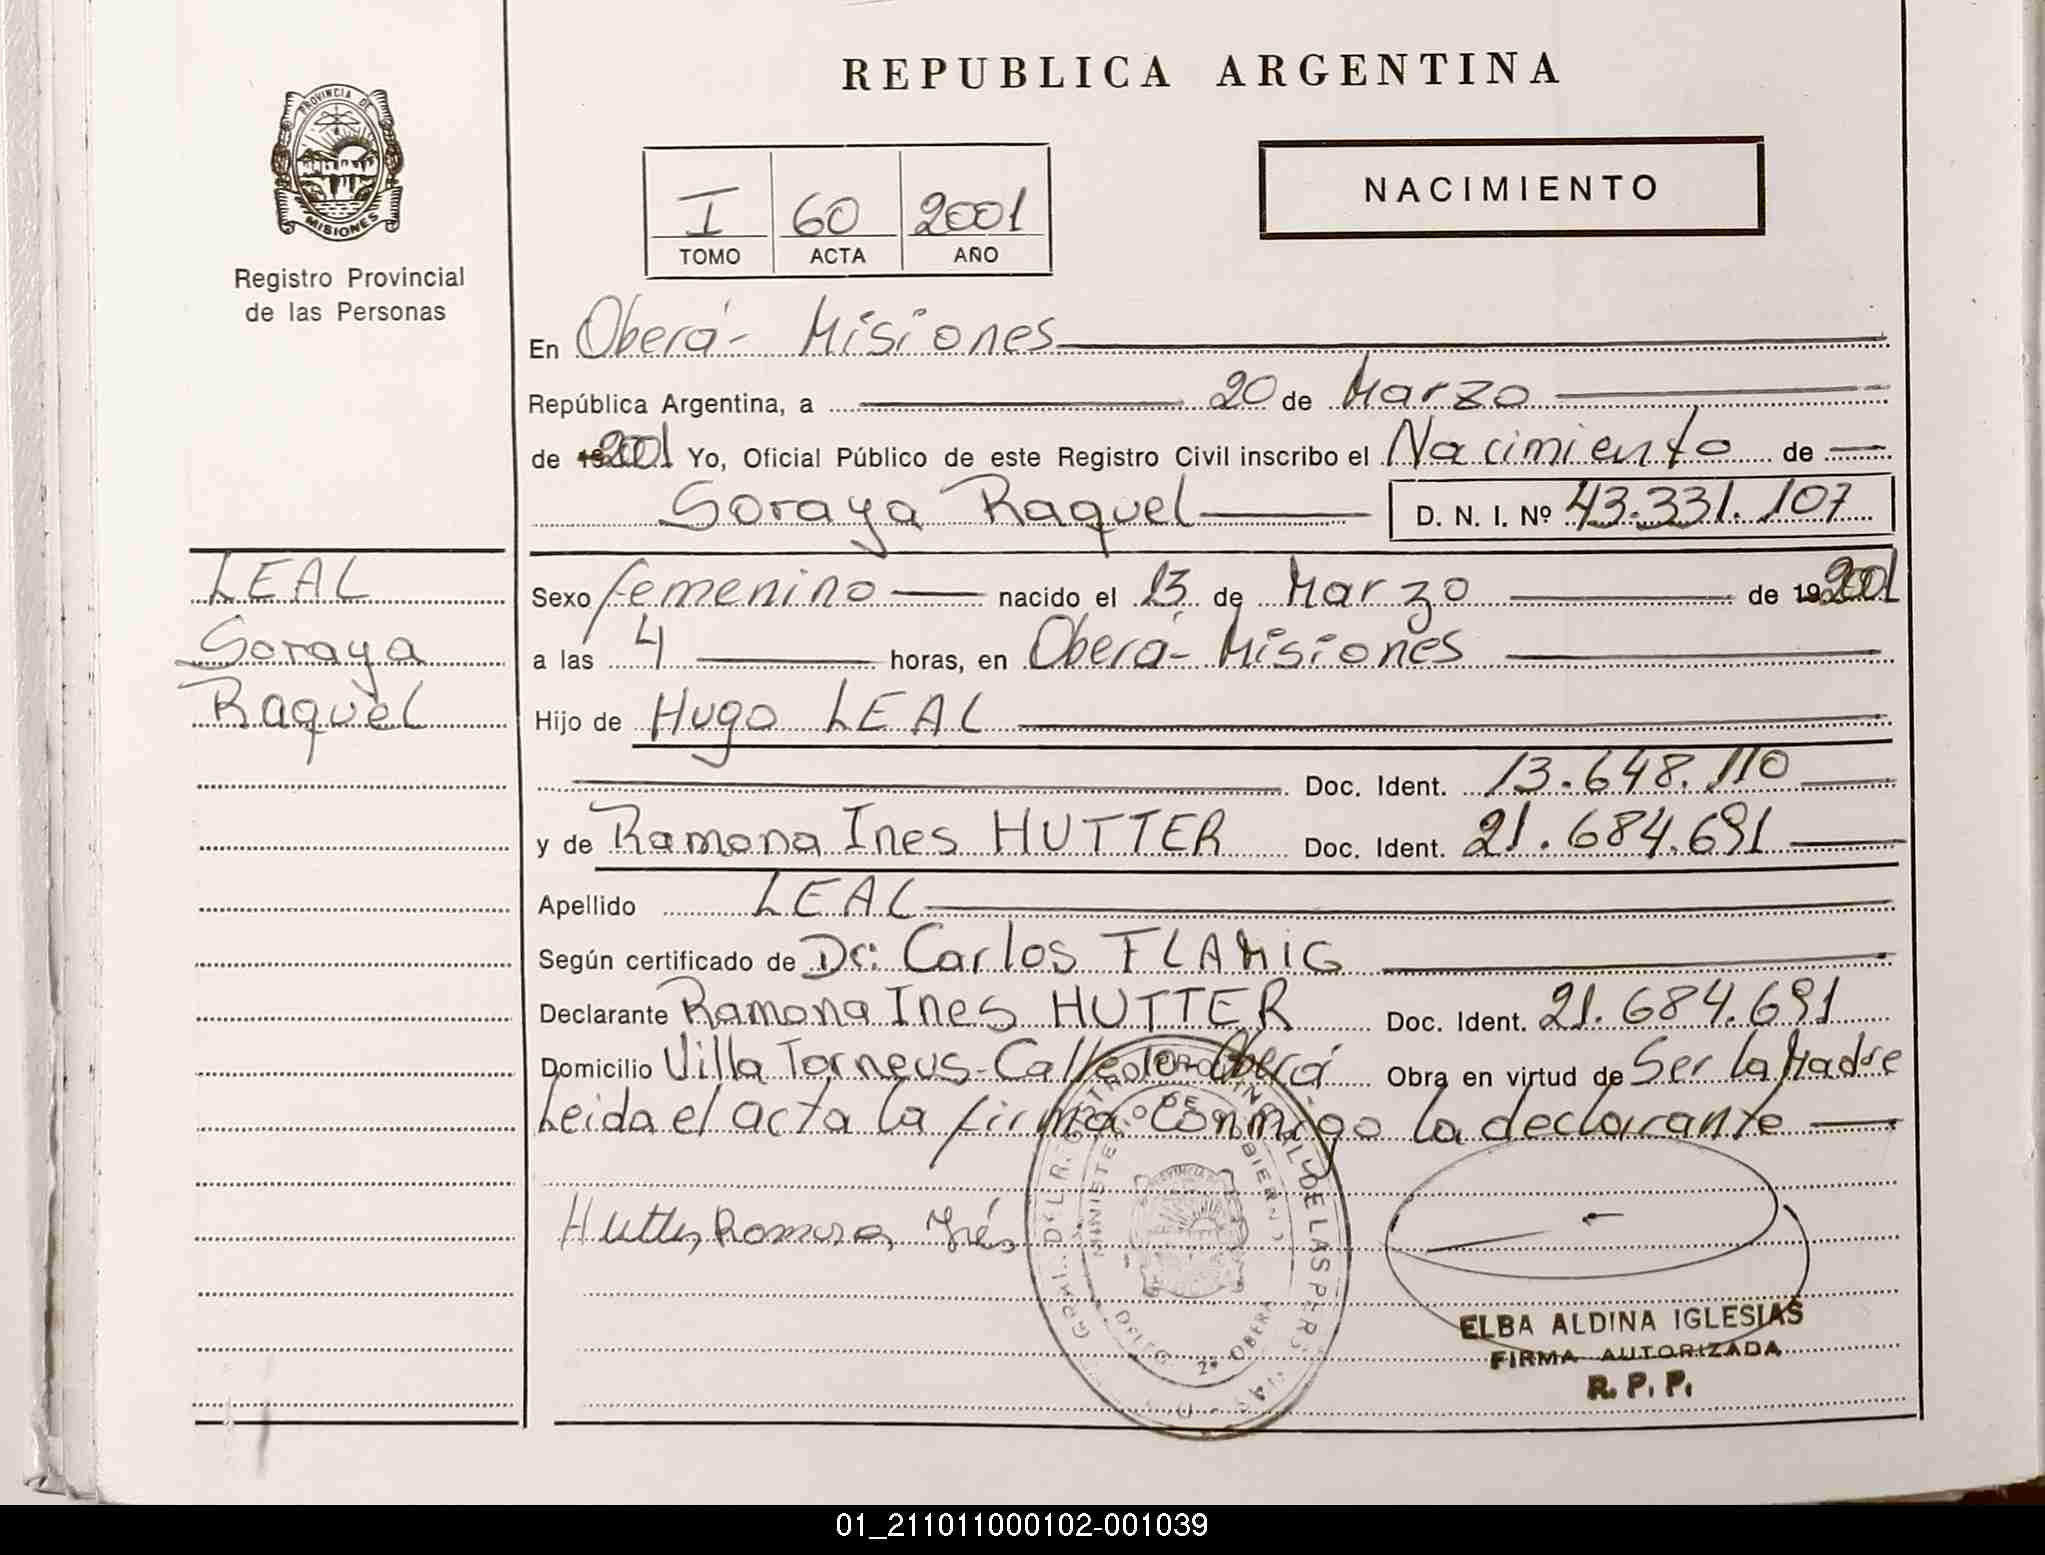 REPUBLICA ARGENTINA
PROVINCIA DE
MISIONES
Registro Provincial
de las Personas
I 60 2001
TOMO ACTA AÑO
NACIMIENTO
En Oberá - Misiones
República Argentina, a 20 de Marzo
de 19 2001 Yo, Oficial Público de este Registro Civil inscribo el Nacimiento de
Soraya Raquel D. N. I. Nº 43.331.107
LEAL
Soraya
Raquel
Sexo femenino nacido el 13 de Marzo de 19 2001
a las 4 horas, en Oberá - Misiones
Hijo de Hugo LEAL
Doc. Ident. 13.648.110
y de Ramona Ines HUTTER Doc. Ident. 21.684.691
Apellido LEAL
Según certificado de Dr: Carlos FLAMIG
Declarante Ramona Ines HUTTER Doc. Ident. 21.684.691
Domicilio Villa Torneus - Calle 10 - Oberá Obra en virtud de Ser la Madre
Leida el acta la firma conmigo la declarante
Hutter Ramona Inés
ELBA ALDINA IGLESIAS
FIRMA AUTORIZADA
R. P. P.
01_211011000102-001039